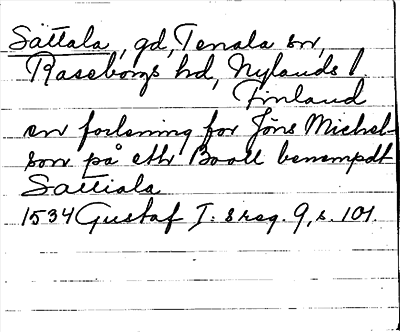 Sattala, gd, Tenala sn,
Raseborgs hd, Nylands l.
Finland
en forlening for Jöns Michel-
son på ett Booll benempdt
Sattiala
1534 Gustaf I: s reg. 9, s. 101.